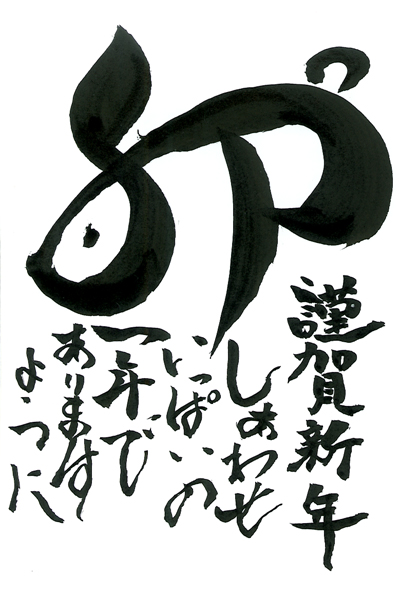 卯
謹賀新年
しあわせ
いっぱいの
一年で
あります
ように